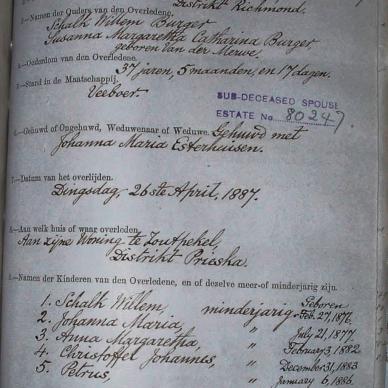 Distrikt Richmond.
2—Namen der Ouders van den Overledene.
Schalk Willem Burger
Susanna Margaretha Catharina Burger
geboren Van der Merwe.
4—Ouderdom van den Overledene.
37 jaren, 5 maanden, en 17 dagen.
5—Stand in de Maatschappij.
Veeboer.
SUB-DECEASED SPOUSE
ESTATE No. 80247
6—Gehuwd of Ongehuwd, Weduwenaar of Weduwe. Gehuwd met
Johanna Maria Esterhuisen.
7—Datum van het overlijden.
Dingsdag, 26ste April, 1887.
8—Aan welk huis of waar overleden.
Aan zijne Woning te Zoutpekel,
Distrikt Prieska.
9—Namen der Kinderen van den Overledene, en of dezelve meer- of minderjarig zijn.
Geboren
1. Schalk Willem, minderjarig Feb. 27, 1876.
2. Johanna Maria, " July 21, 1877
3. Anna Margaretha, " February 3, 1882.
4. Christoffel Johannes, " December 31, 1883
5. Petrus, " January 6, 1886.